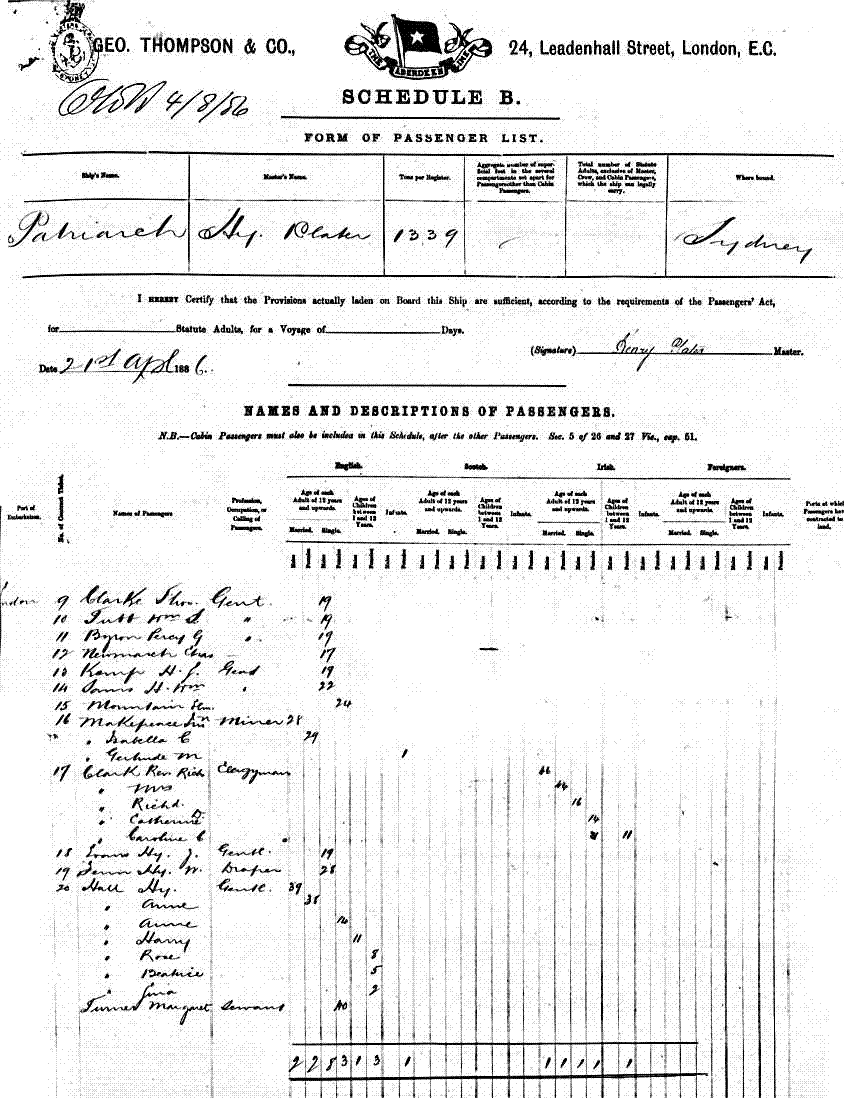 GEO. THOMPSON & CO.,
THE ABERDEEN LINE
24, Leadenhall Street, London, E.C.
4/8/86
SCHEDULE B.
FORM OF PASSENGER LIST.
Ship's Name. Master's Name. Tons per Register. Aggregate number of superficial feet in the several compartments set apart for Passengers other than Cabin Passengers. Total number of Statute Adults, exclusive of Master, Crew, and Cabin Passengers, which the ship can legally carry. Where bound.
Patriarch Hy. Plater 1339 Sydney
I HEREBY Certify that the Provisions actually laden on Board this Ship are sufficient, according to the requirements of the Passengers' Act,
for Statute Adults, for a Voyage of Days.
(Signature) Henry Plater Master.
Date 21st Apl 1886.
NAMES AND DESCRIPTIONS OF PASSENGERS.
N.B.—Cabin Passengers must also be included in this Schedule, after the other Passengers. Sec. 5 of 26 and 27 Vic., cap. 51.
English. Scotch. Irish. Foreigners.
Port of Embarkation. No. of Contract Ticket. Names of Passengers Profession, Occupation, or Calling of Passengers. Age of each Adult of 12 years and upwards. Married. Single. Ages of Children between 1 and 12 Years. Infants. Age of each Adult of 12 years and upwards. Married. Single. Ages of Children between 1 and 12 Years. Infants. Age of each Adult of 12 years and upwards. Married. Single. Ages of Children between 1 and 12 Years. Infants. Age of each Adult of 12 years and upwards. Married. Single. Ages of Children between 1 and 12 Years. Infants. Ports at which Passengers have contracted to land.
ndon 9 Clarke Thos. Gent. 19
10 Tubb Wm S. " 19
11 Byron Percy G " 19
12 Newmarch Chas — 17
13 Kemp H. J. Gent 19
14 H. Wm " 22
15 Mountain 24
16 Makepeace Miner 28
" Isabella C 29
" Gertrude M 1
17 Clark Rev Rich Clergyman 46
" Mrs 44
" Richd. 16
" Catherine 14
" Caroline C 11
18 Evans Hy. J. Gentl. 19
19 Hy. W. Draper 28
20 Hall Hy. Gentl. 39
" Anne 38
" Anne 14
" Harry 11
" Rose 8
" Beatrice 5
" 2
Turner Margaret Servant 40
2 2 8 3 1 3 1 1 1 1 1 1